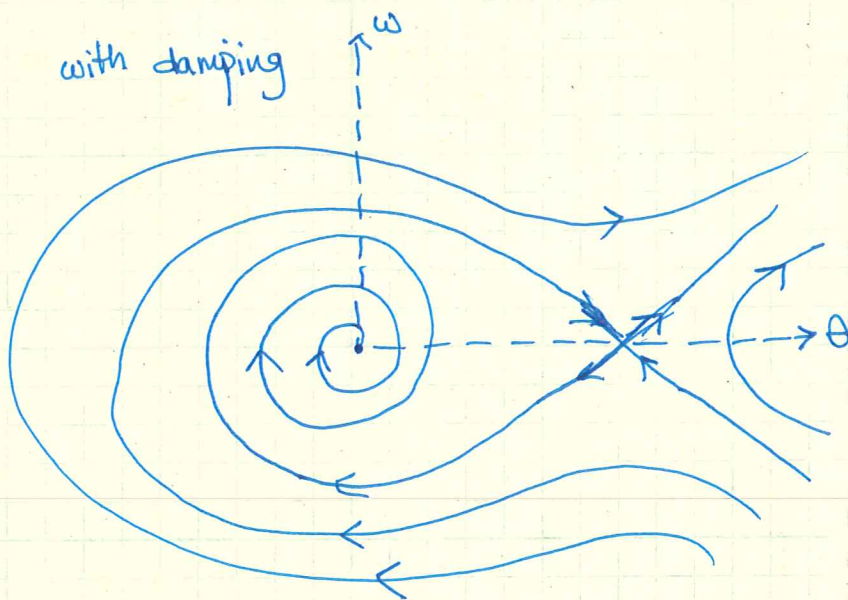 with damping
ω
θ